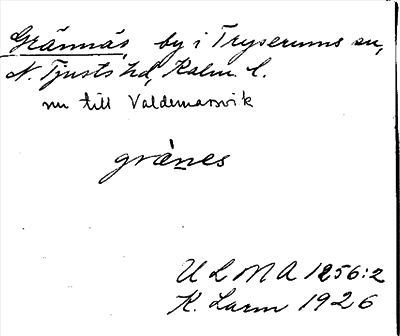 Grännäs, by i Tryserums sn,
N. Tjusts hd, Kalm. l.
nu till Valdemarsvik
græ̀nes
ULMA 1256:2
K. Larm 1926